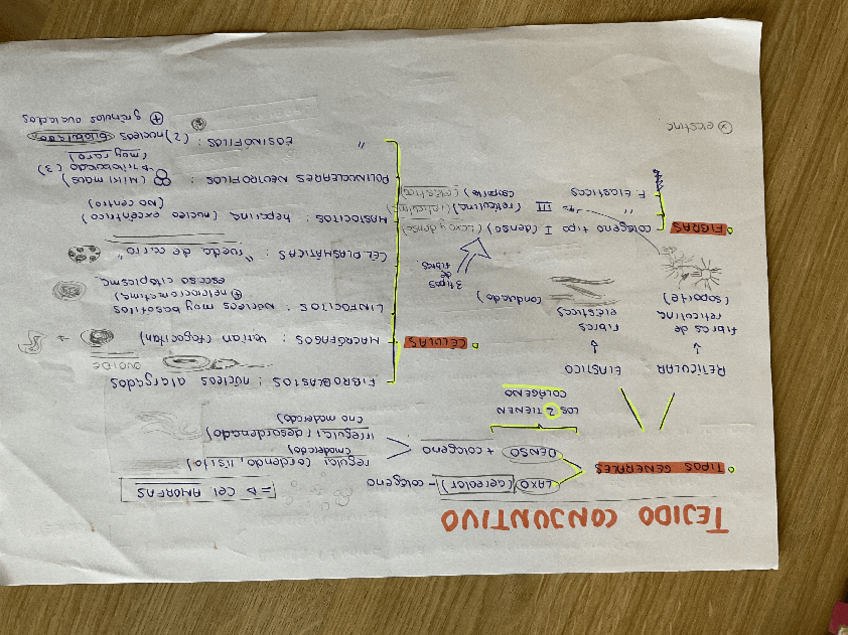 TEJIDO CONJUNTIVO
• TIPOS GENERALES
LAXO (aereolar) - colágeno
=> Cel AMORFAS
DENSO + colageno
regular (ordenado, listo)
(maderado)
irregular (desordenado)
(no maderado)
LOS 2 TIENEN
COLÁGENO
RETICULAR
↓
fibras de
reticulina
(soporte)
ELÁSTICO
↓
fibras
elásticas
(ondulado)
• FIBRAS
colágeno tipo I (denso) (laxo y denso)
" III (reticulina) (reticular)
F. ELÁSTICAS (soporte) (elástico)
3 tipos
de
fibras
→ elastina
• CÉLULAS
FIBROBLASTOS: núcleos alargados
OVOIDE
MACRÓFAGOS: varían (fagocitan)
LINFOCITOS: núcleos muy basófilos
(+ heterocromatina)
escaso citoplasma
CEL PLASMÁTICAS "rueda de carro"
MASTOCITOS: heparina (núcleo excéntrico)
(NO centro)
POLINUCLEARES NEUTRÓFILOS: (Miki maus)
trilobulado (3)
(muy raro)
" EOSINÓFILOS: (2) núcleos bilobulado
+ gránulos